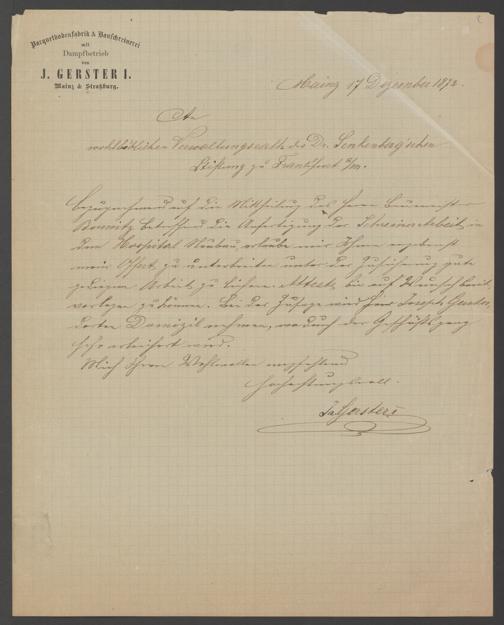 Parquethodenfabrik & Bauschreinerei
mit
Dampfbetrieb
von
J. GERSTER I.
Mainz & Straßburg.
Mainz 17 Dezember 1872.
An
wohllöblichen Verwaltungsrath der Dr. Senkenberg'schen
Stiftung zu Frankfurt a/m.
Bezugnehmend auf die Mittheilung des Herrn
betreffend die Anfertigung der Schreinerarbeit in
dem Hospital Neubau erlaube mir Ihnen ergebenst
mein Offert zu unterbreiten unter der Zusicherung gute
gediegene Arbeit zu liefern. Atteste bin auf Wunsch bereit
vorlegen zu können. Bei der Zusage wird Joseph Gerster
dorten Domizil nehmen, wodurch der Geschäftsgang
sehr erleichtert wird.
Mich Ihrem Wohlwollen empfehlend
hochachtungsvoll.
J. Gerster I